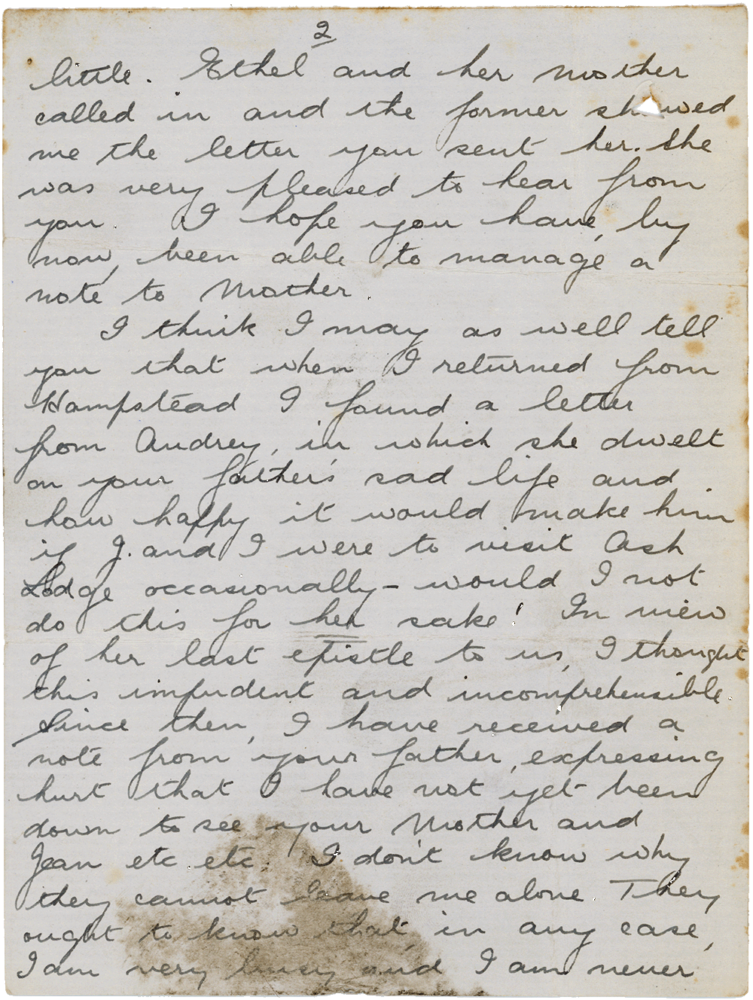 2
little. Ethel and her mother
called in and the former showed
me the letter you sent her. She
was very pleased to hear from
you. I hope you have, by
now, been able to manage a
note to Mother.
I think I may as well tell
you that when I returned from
Hampstead I found a letter
from Audrey, in which she dwelt
on your father's sad life and
how happy it would make him
if J. and I were to visit Ash
Lodge occasionally – would I not
do this for her sake! In view
of her last epistle to us, I thought
this impudent and incomprehensible.
Since then, I have received a
note from your father, expressing
hurt that I have not yet been
down to see your Mother and
Jean etc etc. I don't know why
they cannot leave me alone They
ought to know that, in any case,
I am very busy and I am never